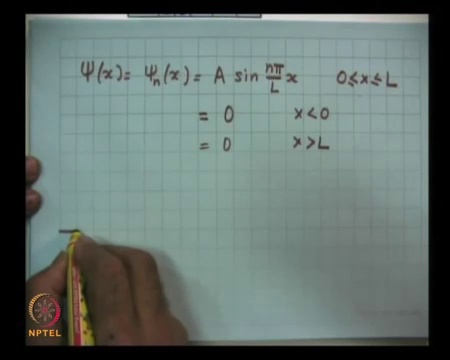 Ψ(x) = Ψn(x) = A sin nπ/L x    0 ≤ x ≤ L
= 0    x < 0
= 0    x > L
NPTEL